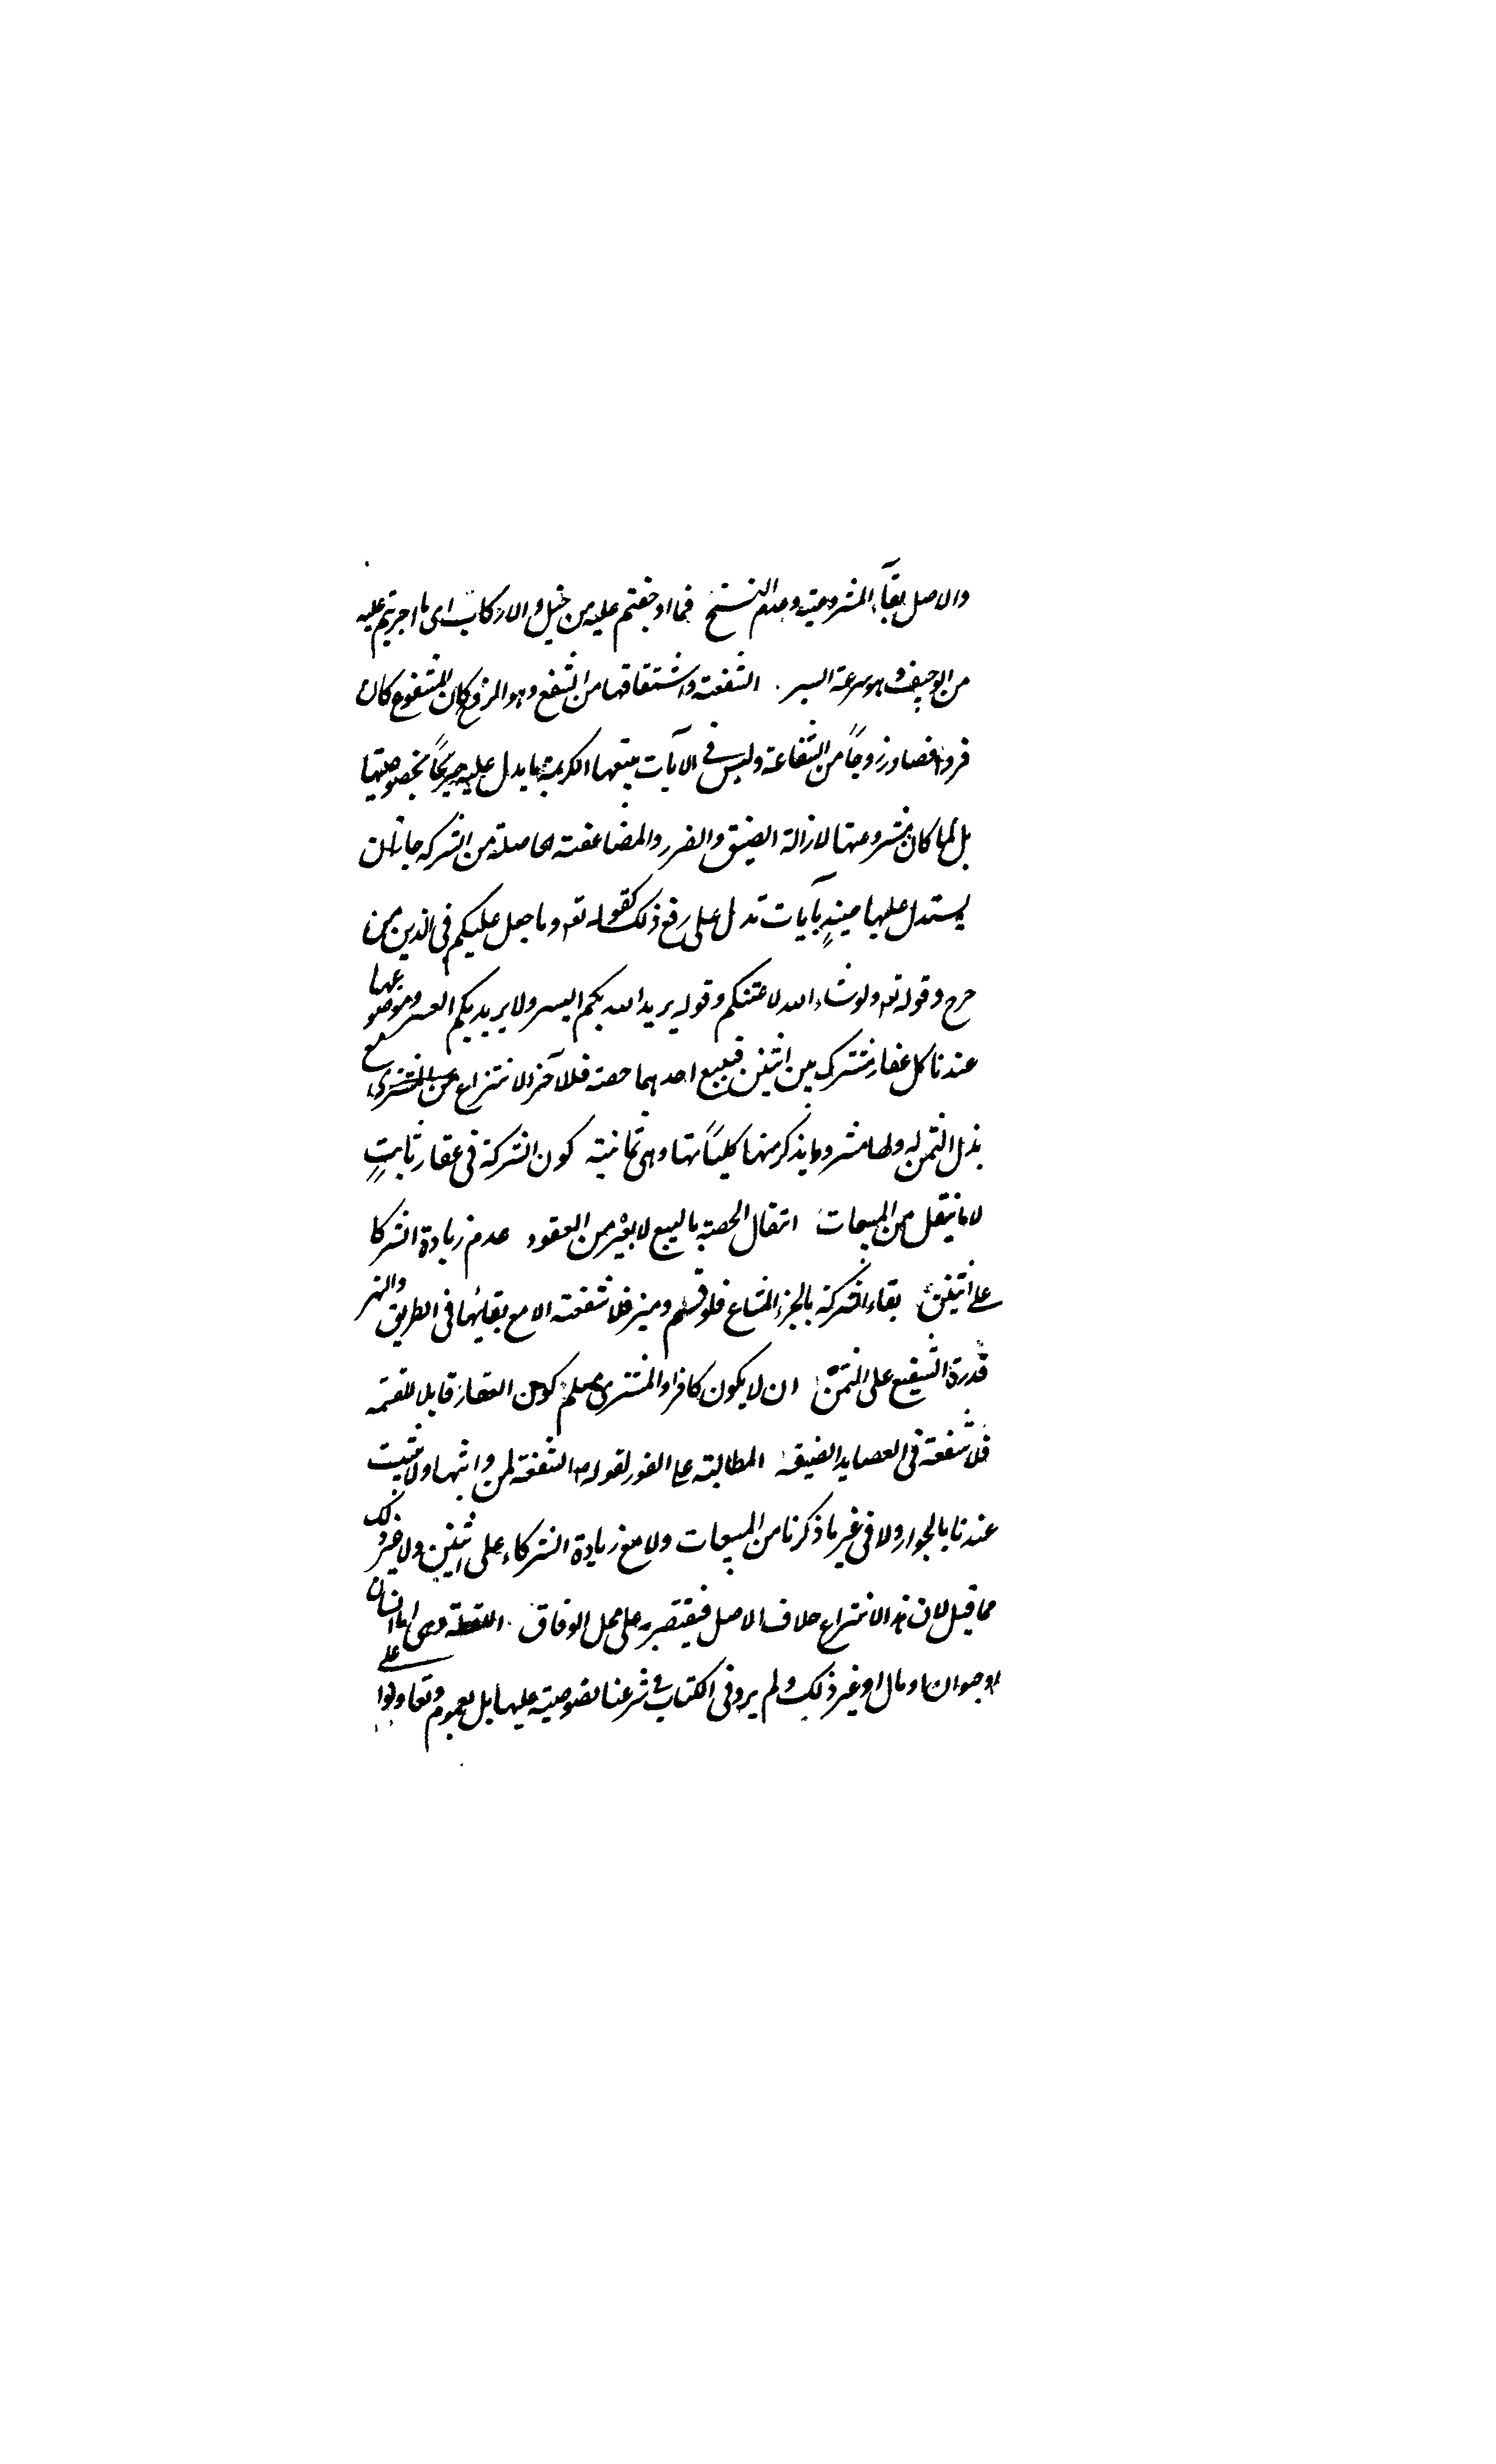 والاصل بقآء المشروعية وعدم النسخ فما اوجفتم عليه من خيل ولا ركاب اى ما اجريتم عليه
من الوجيف وهو سرعة السير . الشفعة واشتقاقها من الشفع وهو الزوج كان المشفوع كان
فردا فصار زوجاً من الشفاعة وليس فى الآيات الكريمة ما يدل عليه صريحاً بخصوصيتها
بل لما كان مشروعيتها لازالة الضيق والضرر والمضاعفة الحاصلة من الشركه جاز ان
يستدل عليها حينئذٍ بآيات تدل على رفع ذلك كقوله تعه وما جعل عليكم فى الدين من
حرج وقوله تعه ولو شاء الله لاعنتكم وقوله يريد الله بكم اليسر ولا يريد بكم العسر وموضوعها
عندنا كل عقار مشترك بين اثنين فيبيع احدهما حصته فللآخر الانتزاع من المشترى مع
بذل الثمن له ولها شروط يذكر منها كلياتها وهى ثمانية كون الشركة فى عقار ثابتٍ
لا ما ينقل من المبيعات انتقال الحصة بالبيع لا بغيره من العقود عدم زيادة الشركا
على اثنين بقاء الشركة بالجزء المشاع فلو قسم وميز فلا شفعة الا مع بقائها فى الطريق والنهر
قدرة الشفيع على الثمن ان لا يكون كافرا والمشترى مسلم كون العقار قابلا للقسمه
فلا شفعة فى العضايد الضيقة المطالبة على الفور لقوله ص الشفعة لمن واثبها ولا تثبت
عندنا بالجوار ولا فى غير ما ذكرنا من المبيعات ولا مع زيادة الشركاء على اثنين ولا غير ذلك
مما قيل لان هذا الانتزاع خلاف الاصل فيقتصر به على محل الوفاق . اللقطة وهى اما انسان
او حيوان او مال او غير ذلك ولم يرد فى الكتاب فى شرعنا نصوصية عليها بل بعموم وتعاونوا على